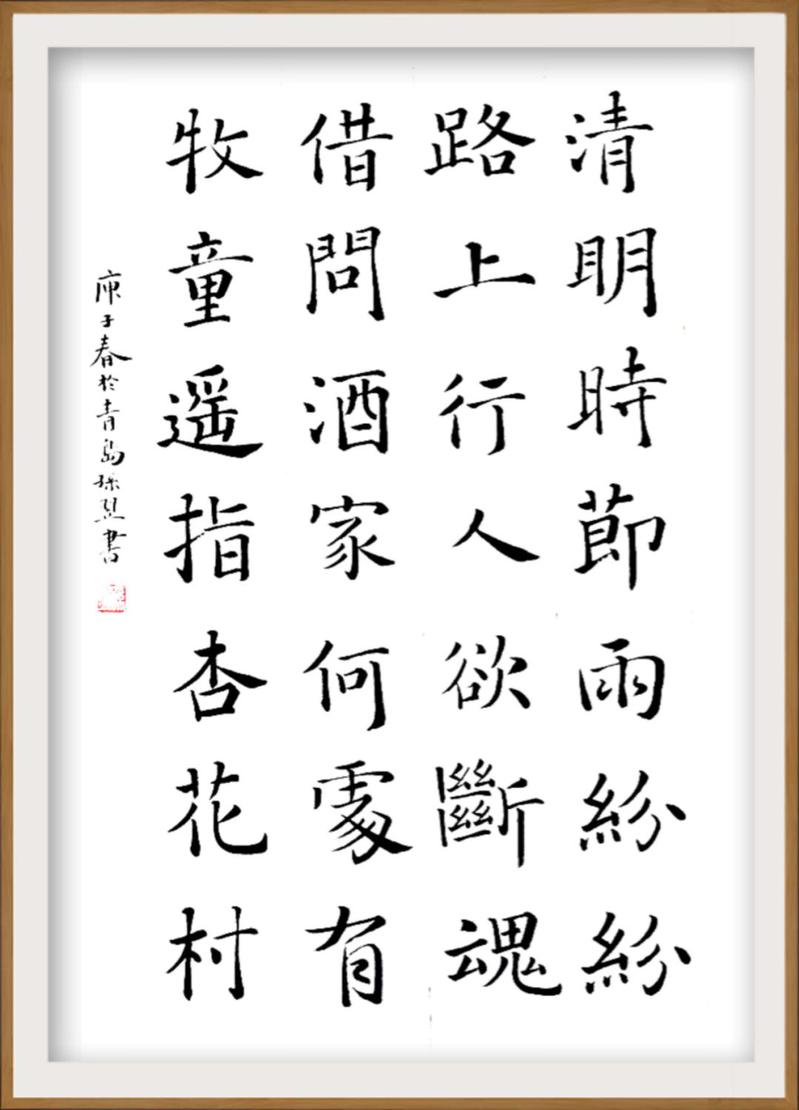 清明時節雨紛紛
路上行人欲斷魂
借問酒家何處有
牧童遥指杏花村
庚子春於青島 書